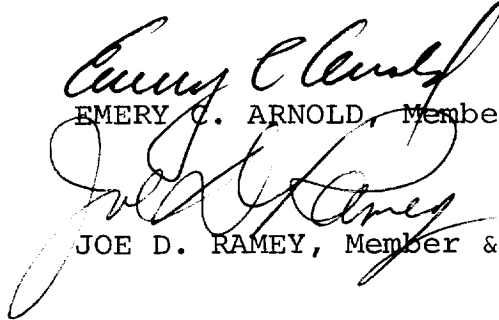 Emery C Arnold
EMERY C. ARNOLD, Membe
Joe D Ramey
JOE D. RAMEY, Member &